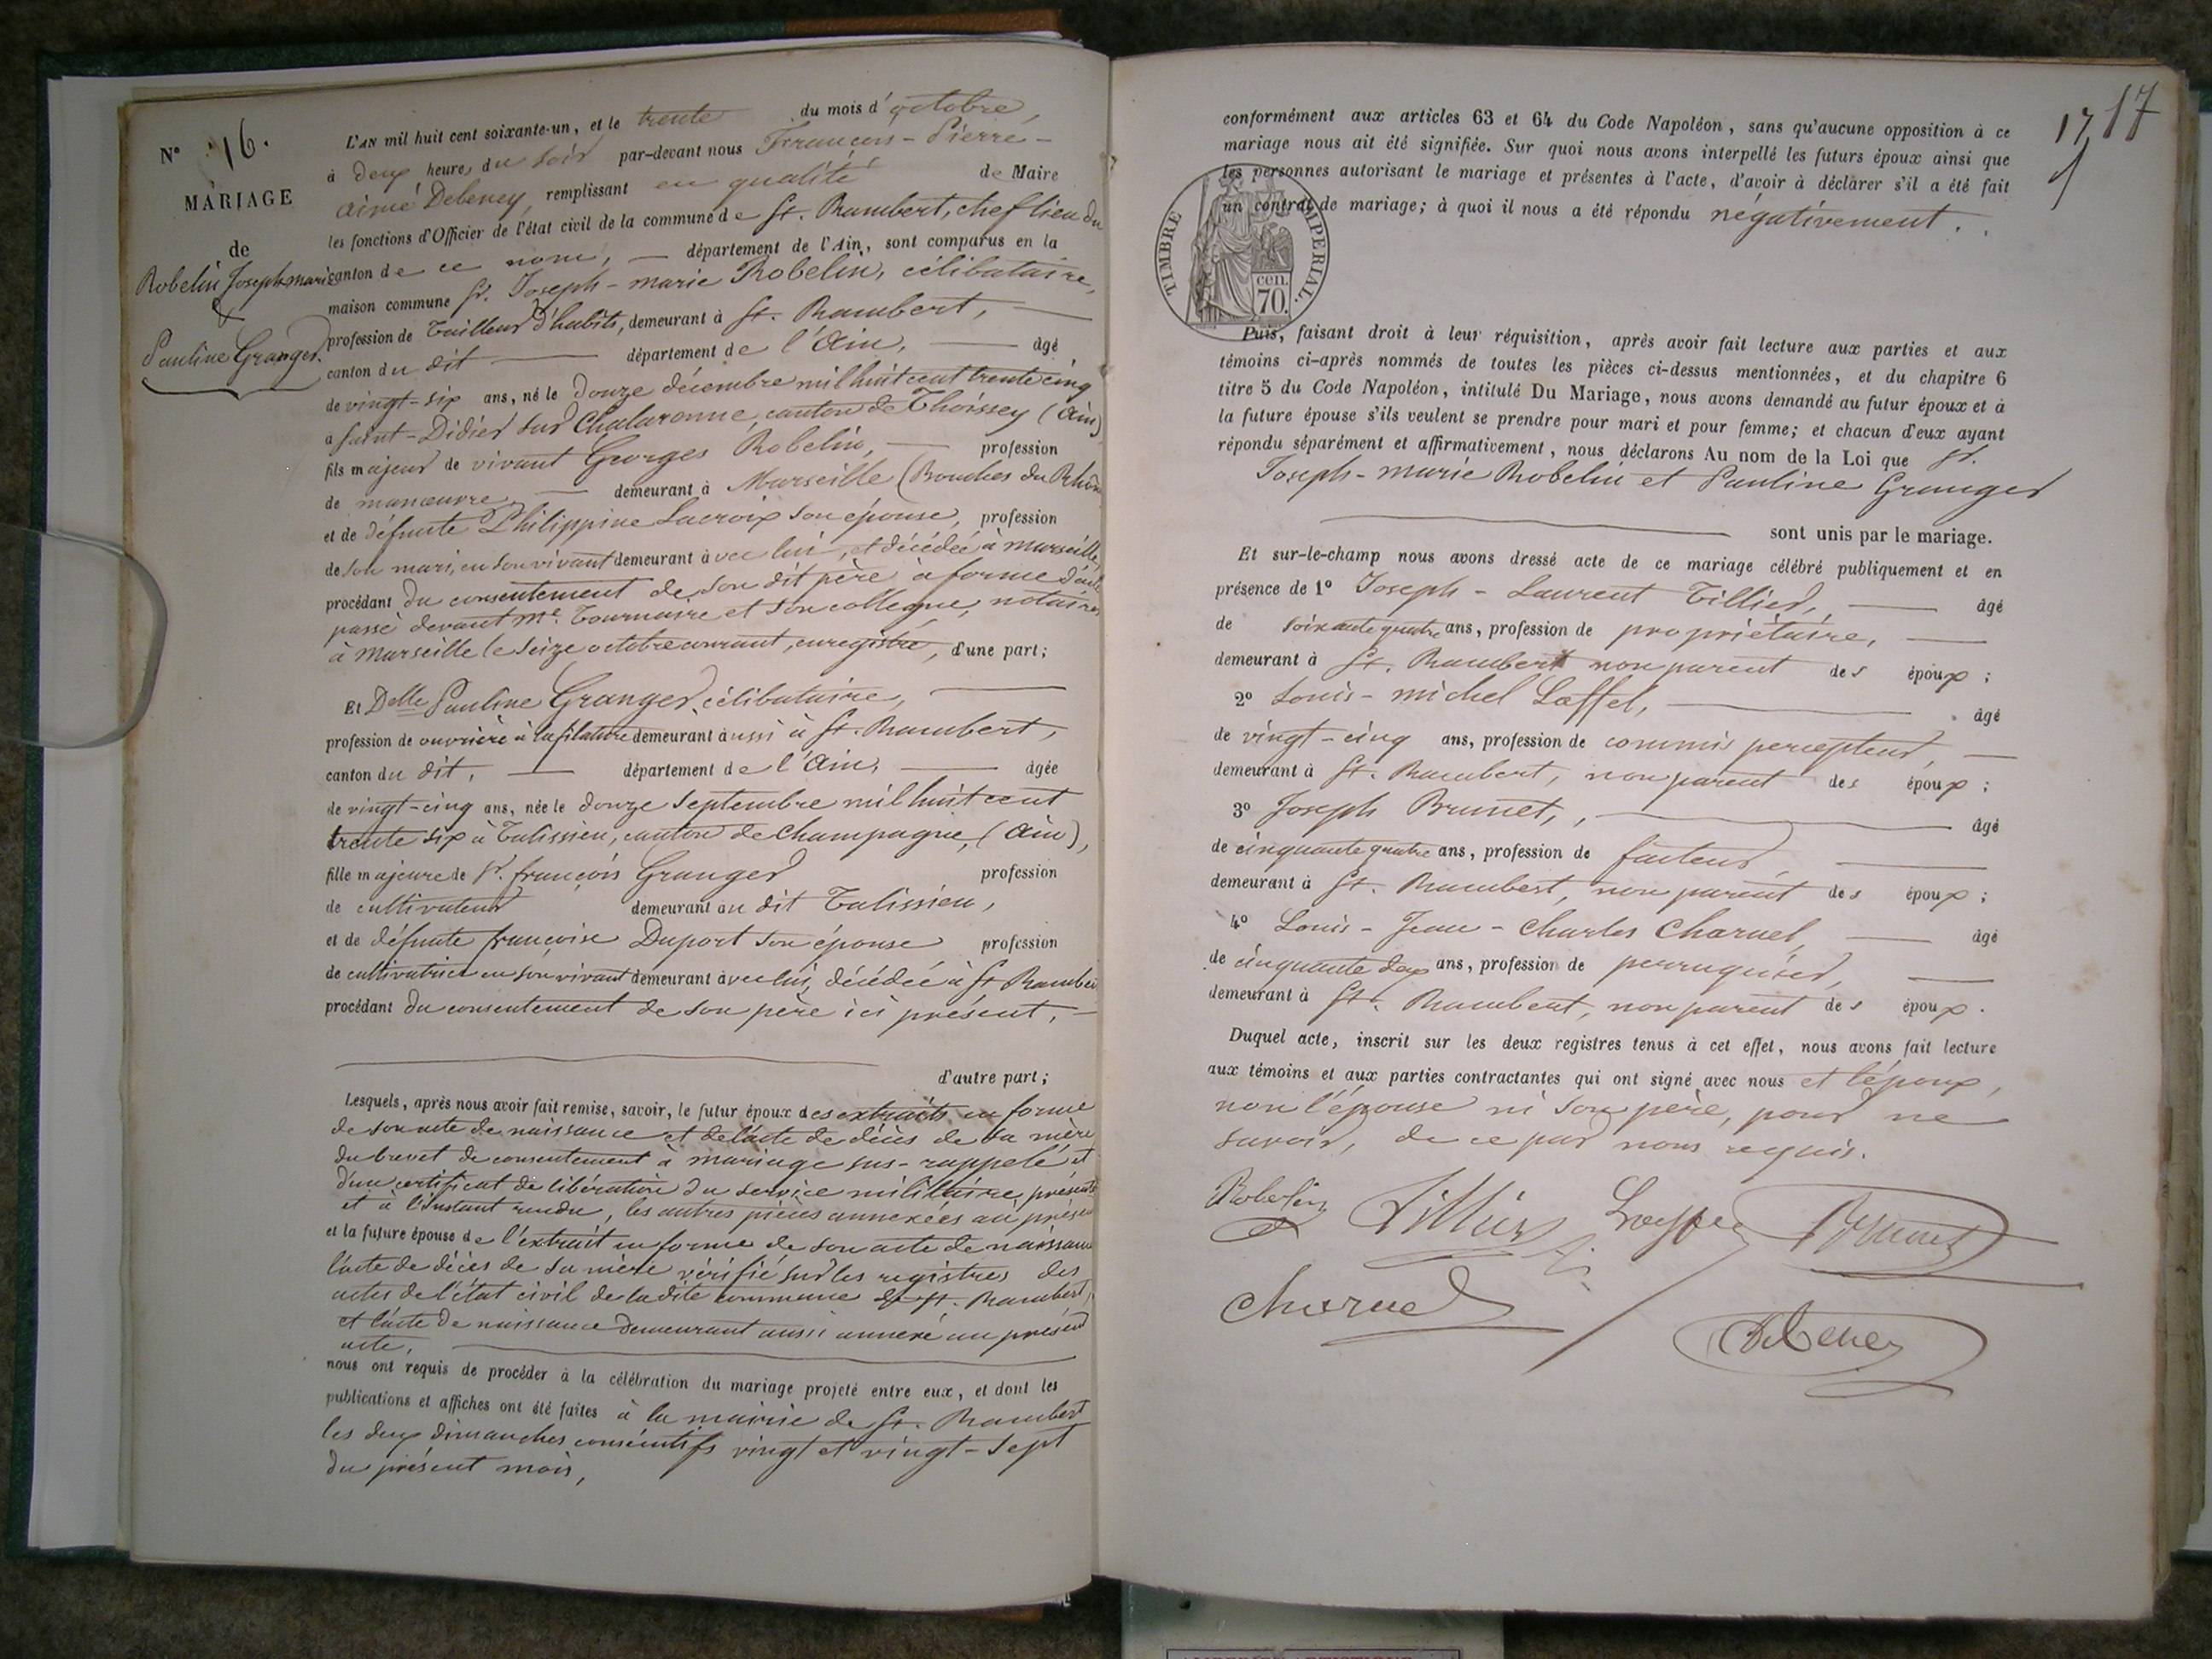 N° 16.
MARIAGE
de
Robelin Joseph marie
&
Pauline Granger.
L'AN mil huit cent soixante-un, et le trente du mois d'octobre,
à deux heures du soir par-devant nous François-Pierre-
aimé Debeney, remplissant en qualité de Maire
les fonctions d'Officier de l'état civil de la commune de St. Rambert, chef lieu du
canton de ce nom, — département de l'Ain, sont comparus en la
maison commune Sr. Joseph-marie Robelin, célibataire,
profession de Tailleur d'habits, demeurant à St. Rambert, —
canton du dit — département de l'Ain, — âgé
de vingt-six ans, né le douze décembre mil huit cent trente cinq
à Saint-Didier sur Chalaronne, canton de Thoissey (Ain)
fils majeur de vivant Georges Robelin, — profession
de manœuvre, — demeurant à Marseille (Bouches du Rhône
et de défunte Philippine Lacroix son épouse, profession
de son mari, en son vivant demeurant avec lui, et décédée à Marseille,
procédant du consentement de son dit père à forme d'acte
passé devant Me. Tournaire et son collegue, notaires
à Marseille le seize octobre courant, enregistré, d'une part;
Et Delle Pauline Granger, célibataire, —
profession de ouvrière à la filature demeurant aussi à St. Rambert,
canton du dit, — département de l'Ain, — âgée
de vingt-cinq ans, née le douze septembre mil huit cent
trente six à Talissieu, canton de Champagne, (Ain),
fille majeure de Sr. françois Granger profession
de cultivateur demeurant au dit Talissieu,
et de défunte françoise Duport son épouse profession
de cultivatrice en son vivant demeurant avec lui, décédée à St Rambert
procédant du consentement de son père ici présent, —
d'autre part;
Lesquels, après nous avoir fait remise, savoir, le futur époux des extraits en forme
de son acte de naissance et de l'acte de décès de sa mère
du brevet de consentement à mariage sus-rappelé et
d'un certificat de libération du service militaire, présenté
et à l'instant rendu, les autres pièces annexées au présent
et la future épouse de l'extrait en forme de son acte de naissance
l'acte de décès de sa mère vérifié sur les registres des
actes de l'état civil de la dite commune de St. Rambert,
et l'acte de naissance demeurant aussi annexé au présent
acte,
nous ont requis de procéder à la célébration du mariage projeté entre eux, et dont les
publications et affiches ont été faites à la mairie de St. Rambert
les deux dimanches consécutifs vingt et vingt-sept
du présent mois,
17 17
conformément aux articles 63 et 64 du Code Napoléon, sans qu'aucune opposition à ce
mariage nous ait été signifiée. Sur quoi nous avons interpellé les futurs époux ainsi que
les personnes autorisant le mariage et présentes à l'acte, d'avoir à déclarer s'il a été fait
un contrat de mariage; à quoi il nous a été répondu négativement.
TIMBRE IMPERIAL.
cen.
70.
Puis, faisant droit à leur réquisition, après avoir fait lecture aux parties et aux
témoins ci-après nommés de toutes les pièces ci-dessus mentionnées, et du chapitre 6
titre 5 du Code Napoléon, intitulé Du Mariage, nous avons demandé au futur époux et à
la future épouse s'ils veulent se prendre pour mari et pour femme; et chacun d'eux ayant
répondu séparément et affirmativement, nous déclarons Au nom de la Loi que Sr.
Joseph-marie Robelin et Pauline Granger
sont unis par le mariage.
Et sur-le-champ nous avons dressé acte de ce mariage célébré publiquement et en
présence de 1° Joseph-Laurent Tillier, — âgé
de soixante quatre ans, profession de propriétaire, —
demeurant à St. Rambert non parent des époux;
2° Louis-michel Læffel, — âgé
de vingt-cinq ans, profession de commis percepteur, —
demeurant à St. Rambert, non parent des époux;
3° Joseph Brunet, — âgé
de cinquante quatre ans, profession de facteur —
demeurant à St. Rambert, non parent des époux;
4° Louis-Jean-Charles Charuel, — âgé
de cinquante deux ans, profession de perruquier, —
demeurant à St. Rambert, non parent des époux.
Duquel acte, inscrit sur les deux registres tenus à cet effet, nous avons fait lecture
aux témoins et aux parties contractantes qui ont signé avec nous et l'époux,
non l'épouse ni son père, pour ne
savoir, de ce par nous requis.
Robelin Tillier Brunet
Charuel Debeney